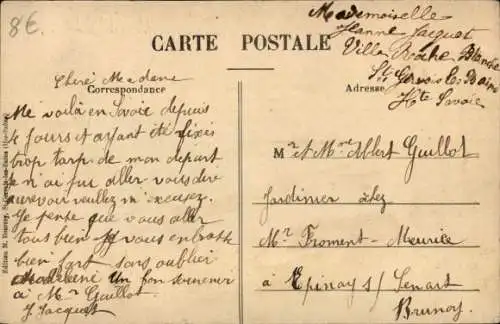 8€
Mademoiselle
Jeanne Jacquet
Villa Roche Blanche
St Gervais les Bains
Hte Savoie
CARTE POSTALE
Correspondance
Adresse
Chère Madame
Me voilà en Savoie depuis
le jours et ayant été fixés
trop tard de mon départ
je n'ai pu aller vous dire
aurevoir veuillez m'excusez.
Je pense que vous aller
tous bien Je vous embrasse
bien fort sans oublier
Madeleine Un bon souvenir
à Mr Guillot
J Jacquet
Mr et Mme Albert Guillot
Jardinier chez
Mr Froment-Meurice
à Epinay s/ Senart
Brunoy.